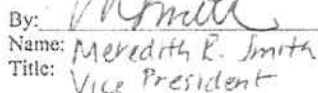 By:
Name: Meredith R. Smith
Title: Vice President